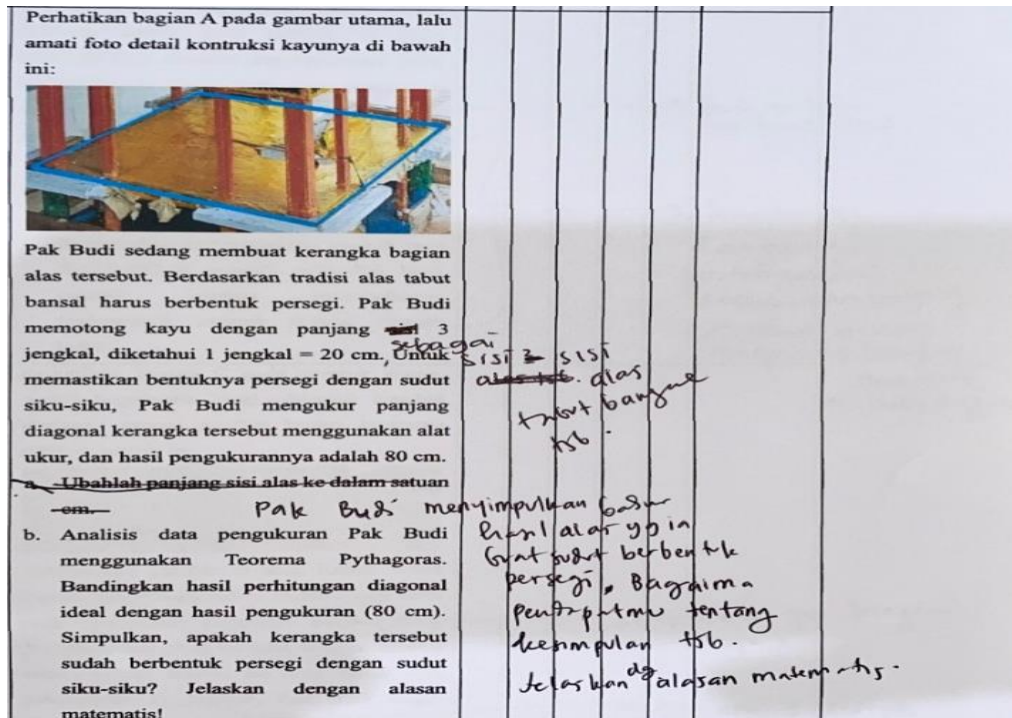 Perhatikan bagian A pada gambar utama, lalu
amati foto detail kontruksi kayunya di bawah
ini:
Pak Budi sedang membuat kerangka bagian
alas tersebut. Berdasarkan tradisi alas tabut
bansal harus berbentuk persegi. Pak Budi
memotong kayu dengan panjang sisi 3
sebagai
jengkal, diketahui 1 jengkal = 20 cm., Untuk
sisi - sisi
memastikan bentuknya persegi dengan sudut
alas tsb. alas
siku-siku, Pak Budi mengukur panjang
diagonal kerangka tersebut menggunakan alat
ukur, dan hasil pengukurannya adalah 80 cm.
tsb.
a. Ubahlah panjang sisi alas ke dalam satuan
cm.
Pak Budi menyimpulkan
hasil alas yg
b. Analisis data pengukuran Pak Budi
menggunakan Teorema Pythagoras.
Bandingkan hasil perhitungan diagonal
ideal dengan hasil pengukuran (80 cm).
Simpulkan, apakah kerangka tersebut
sudah berbentuk persegi dengan sudut
siku-siku? Jelaskan dengan alasan
matematis!
sudut berbentuk
persegi. Bagaima
pendapatmu tentang
kesimpulan tsb.
Jelaskan dg alasan matematis.